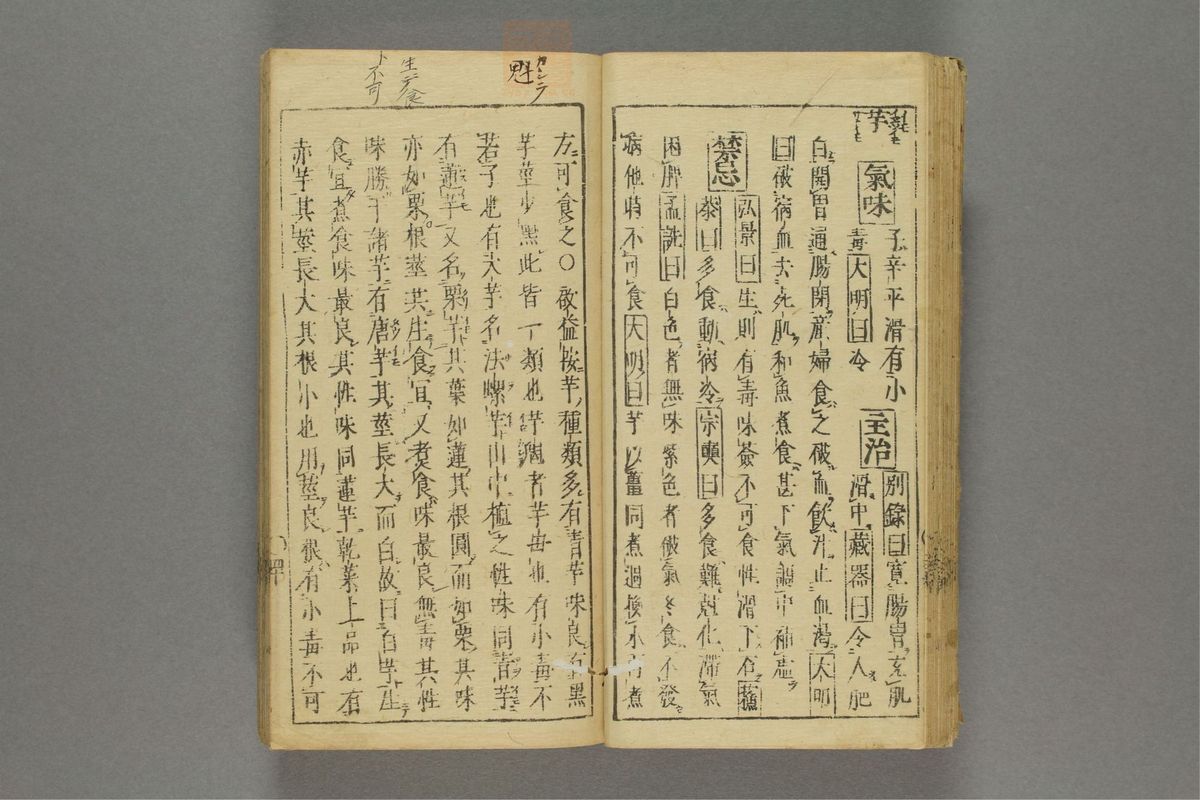 芋
氣味 子辛平滑有小
毒大明曰冷
主治 別錄曰寬腸胃充肌
滑中藏器曰令人肥
白開胃通腸閉產婦食之破血飲汁止血渴大明
曰破宿血去死肌和魚煮食甚下氣調中補虛
禁忌 弘景曰生則有毒味莶不可食性滑下石
恭曰多食動宿冷宗奭曰多食難尅化滯氣
困脾孟詵曰白色者無味紫色者破氣冬食不發
病他時不可食大明曰芋以薑同煮過換水再煮
魁
生デ食
ト不可
方可食之〇敬益按芋種類多有青芋味良有黑
芋莖少黑此皆一類也芋魁者芋母也有小毒不
若子也有大芋名法螺芋山中植之性味同青芋
有蓮芋又名栗芋其葉如蓮其根圓而如栗其味
亦如栗根莖共生食宜又煮食味最良無毒其性
味勝于諸芋有唐芋其莖長大而白故曰白芋生
食宜煮食味最良其性味同蓮芋乾葉上品也有
赤芋其莖長大其根小也用莖良根有小毒不可